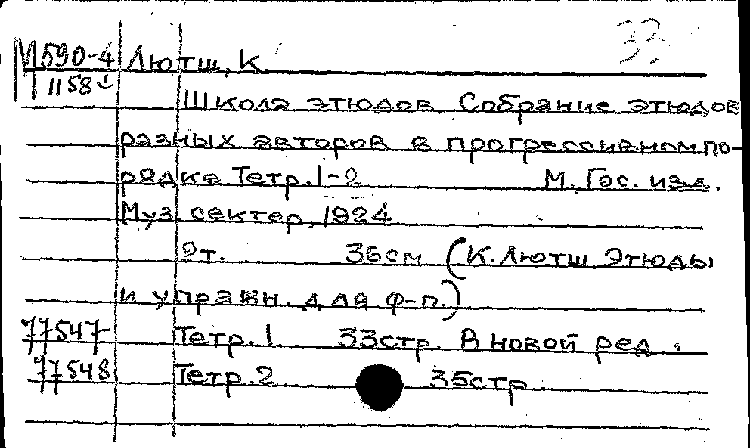 М590-4 Лютш, К.
1158
Школа этюдов Собрание этюдов
разных авторов в прогрессивном по-
рядке Тетр. 1-2 М. Гос. изд.
Муз. сектер, 1924
2 т. 36см (К. Лютш Этюды
и упражн. для ф-п.)
77547 Тетр. 1 33стр. В новой ред.
77548 Тетр. 2 35стр.